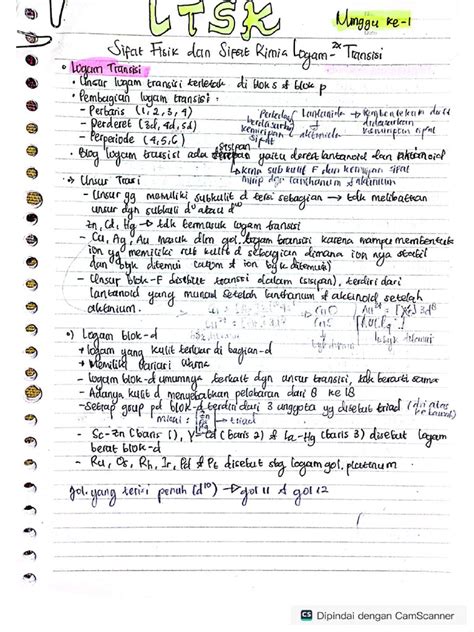 LTSK
Minggu ke-1
Sifat Fisik dan Sifat Kimia Logam-2x Transisi
• Logam Transisi
• Unsur logam transisi terletak di blok s & blok p
• Pembagian logam transisi :
- Perbaris (1, 2, 3, 4)
- Perderet (3d, 4d, 5d)
- Perperiode (4, 5, 6)
Perbedaan Lantanida
berdasarkan
kemiripan & aktinida
sifat
didasarkan
kemiripan sifat
sisipan
• Blog logam transisi ada yaitu deret lantanoid dan aktinoid
karna sub kulit F dan kemiripan sifat
mirip dgn lanthanum & aktinium
→ Unsur Transisi
- Unsur yg memiliki subkulit d terisi sebagian → tdk melibatkan
unsur dgn subkulit d⁰ atau d¹⁰
Zn, Cd, Hg → tdk termasuk logam transisi
- Cu, Ag, Au masuk dlm gol. logam transisi karena mampu membentuk
ion yg memiliki sub kulit d sebagian dimana ion nya stabil
dan byk ditemui (cupum & ion byk ditemui)
- Unsur blok-F disebut transisi dalam (sisipan), terdiri dari
lantanoid yang muncul setelah lanthanum & aktinoid setelah
aktinium.
•) Logam blok-d
+ logam yang kulit terluar di bagian-d
+ Memiliki variasi warna
- logam blok-d umumnya terkait dgn unsur transisi, tdk berarti sama
- Adanya kulit d menyebabkan pelebaran dari 8 ke 18
- Setiap grup pd blok-d terdiri dari 3 anggota yg disebut triad (dri atas
ke bawah)
misal : [Zn Cd Hg] → triad
- Sc-Zn (baris 1), Y-Cd (baris 2) & La-Hg (baris 3) disebut logam
berat blok-d
- Ru, Os, Rh, Ir, Pd & Pt disebut sbg logam gol. platinum
gol. yang terisi penuh (d¹⁰) → gol 11 & gol 12
CS Dipindai dengan CamScanner